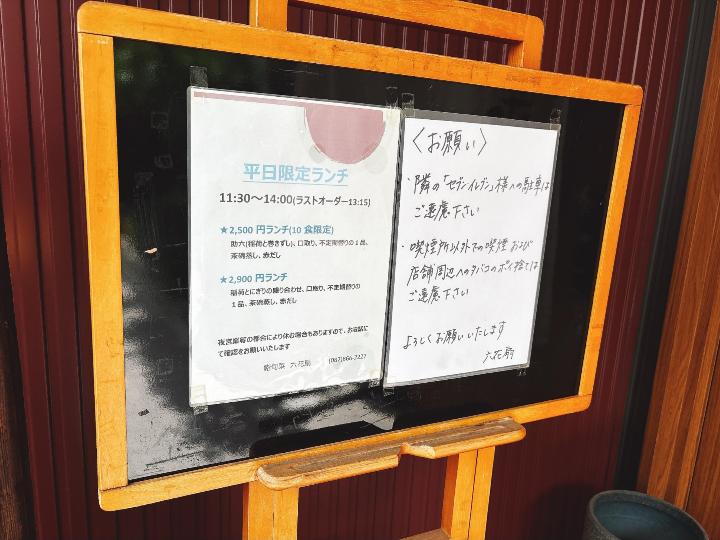 平日限定ランチ
11:30～14:00(ラストオーダー13:15)
★2,500 円ランチ(10 食限定)
助六(稲荷と巻きずし)、口取り、不定期替りの1品、
茶碗蒸し、赤だし
★2,900 円ランチ
稲荷とにぎりの盛り合わせ、口取り、不定期替りの
1品、茶碗蒸し、赤だし
夜営業等の都合により休む場合もありますので、お電話に
て確認をお願いいたします
旬菜 六花扇 (087)866-2227
〈お願い〉
・隣の「セブンイレブン」様への駐車は
ご遠慮下さい
・喫煙所以外での喫煙 および
店舗周辺へのタバコのポイ捨ては
ご遠慮下さい
よろしくお願いいたします
六花扇